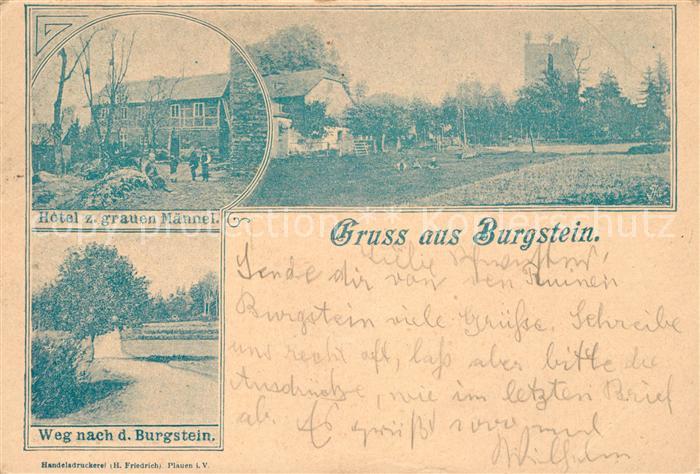 Hotel z. grauen Männel.
Gruss aus Burgstein.
Liebe
Sende dir von den Ruinen
Burgstein viele Grüße. Schreibe
uns recht oft, laß aber bitte die
Ausdrücke, wie im letzten Brief
ab. Es grüßt
Wilhelm
Weg nach d. Burgstein.
Handelsdruckerei (H. Friedrich). Plauen i. V.